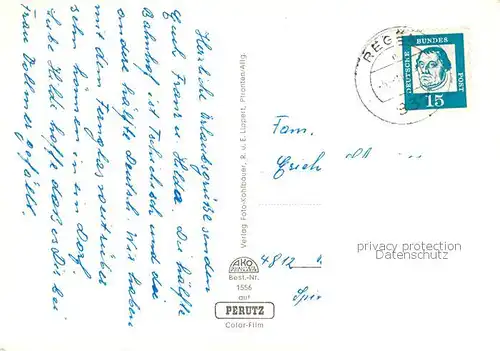 Herzliche Urlaubsgrüße senden
Euch Franz u. Hilda. Die hälfte
Bahnhof ist Tschechisch und die
andere hälfte Deutsch. Wir haben
mit dem Fernglas rüber
sehn können in ein Dorf.
Liebe Hilde hoffe das es Dir bei
Frau Vollmer gefällt.
Verlag Foto-Kohlbauer, R. u. E. Lippert, Pfronten/Allg.
AKO
Best.-Nr.
1556
auf
PERUTZ
Color-Film
REGE
DEUTSCHE BUNDES POST
15
Fam.
Erich
4812
privacy protection
Datenschutz